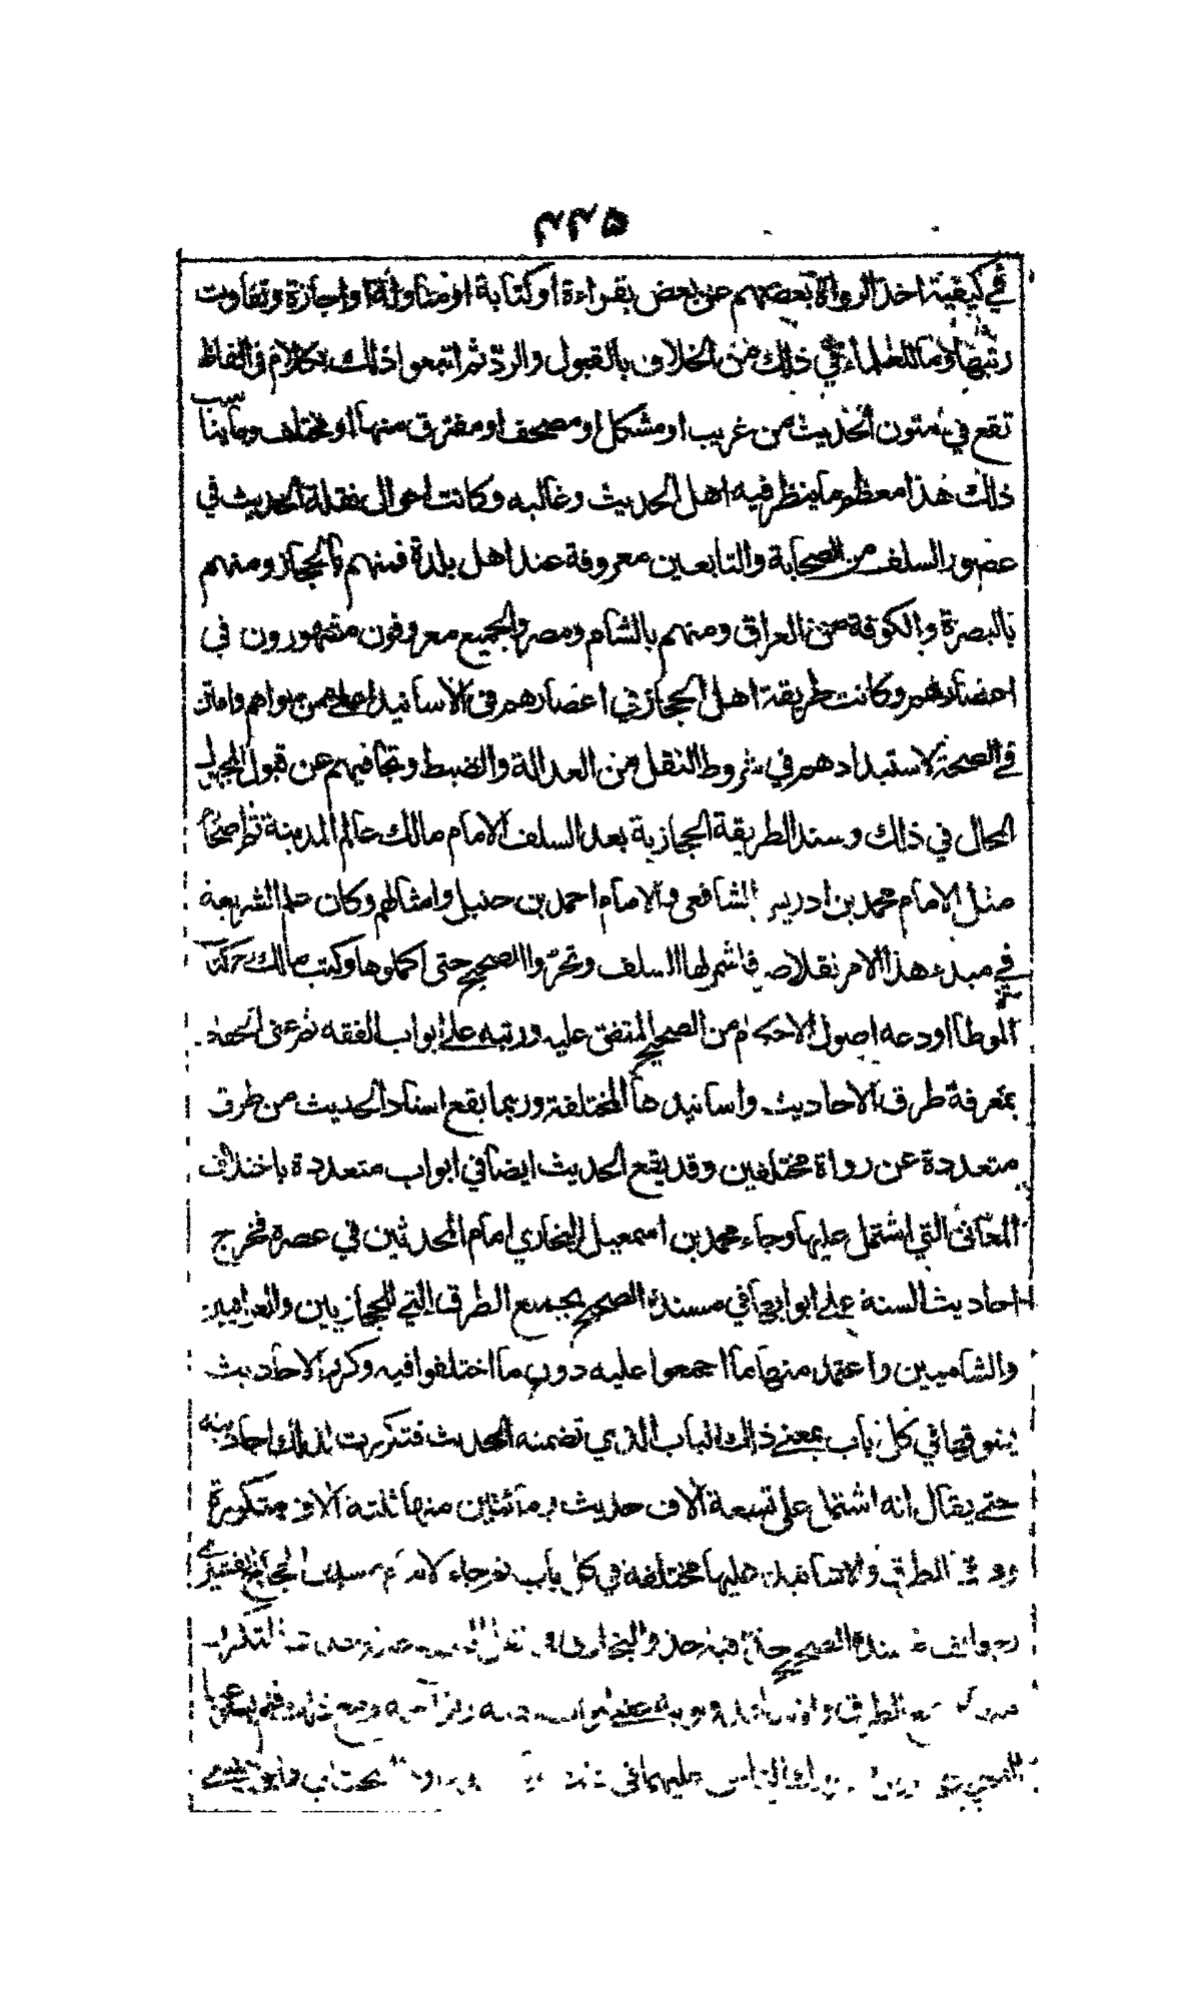 في كيفية اخذ الرواة بعضهم عن بعض بقراءة او كتابة او مناولة او اجازة وتفاوت
رتبها وما للعلماء في ذلك من الخلاف بالقبول والرد ثم اتبعوا ذلك بكلام في الفاظ
تقع في متون الحديث من غريب او مشكل او مصحف او مفترق منها او مختلف وما يناسب
ذلك هذا معظم ما ينظر فيه اهل الحديث وغالبه وكانت احوال نقلة الحديث في
عصور السلف من الصحابة والتابعين معروفة عند اهل بلدة فمنهم بالحجاز ومنهم
بالبصرة والكوفة من العراق ومنهم بالشام ومصر والجميع معروفون مشهورون في
اعصارهم وكانت طريقة اهل الحجاز في اعصارهم في الاسانيد اعلى ممن سواهم وامتن
في الصحة لاستبدادهم في شروط النقل من العدالة والضبط وتجافيهم عن قبول المجهول
الحال في ذلك وسند الطريقة الحجازية بعد السلف الامام مالك عالم المدينة ثم اصحابه
مثل الامام محمد بن ادريس الشافعي والامام احمد بن حنبل وامثالهم وكان علم الشريعة
في مبدء هذا الامر نقلا صرفا شمر لها السلف وتحروا الصحيح حتى اكملوها وكتب مالك كتاب
الموطا اودعه اصول الاحكام من الصحيح المتفق عليه ورتبه على ابواب الفقه ثم عنى الحفاظ
بمعرفة طرق الاحاديث واسانيدها المختلفة وربما يقع اسناد الحديث من طرق
متعددة عن رواة مختلفين وقد يقع الحديث ايضا في ابواب متعددة باختلاف
المعاني التي اشتمل عليها وجاء محمد بن اسمعيل البخاري امام المحدثين في عصره فخرج
احاديث السنة على ابوابها في مسنده الصحيح بجميع الطرق التي للحجازيين والعراقيين
والشاميين واعتمد منها ما اجمعوا عليه دون ما اختلفوا فيه وكرر الاحاديث
يسوقها في كل باب بمعنى ذلك الباب الذي تضمنه الحديث فتكررت لذلك احاديثه
حتى يقال انه اشتمل على تسعة آلاف حديث ومائتين منها ثلثة آلاف متكررة
الطرق والاسانيد عليها مختلفة في كل باب ثم جاء الامام مسلم بن الحجاج القشيري
مسنده الصحيح حذا فيه حذو البخاري في نقل
الطرق والاسانيد وبوبه على ابواب
الناس عليهما في